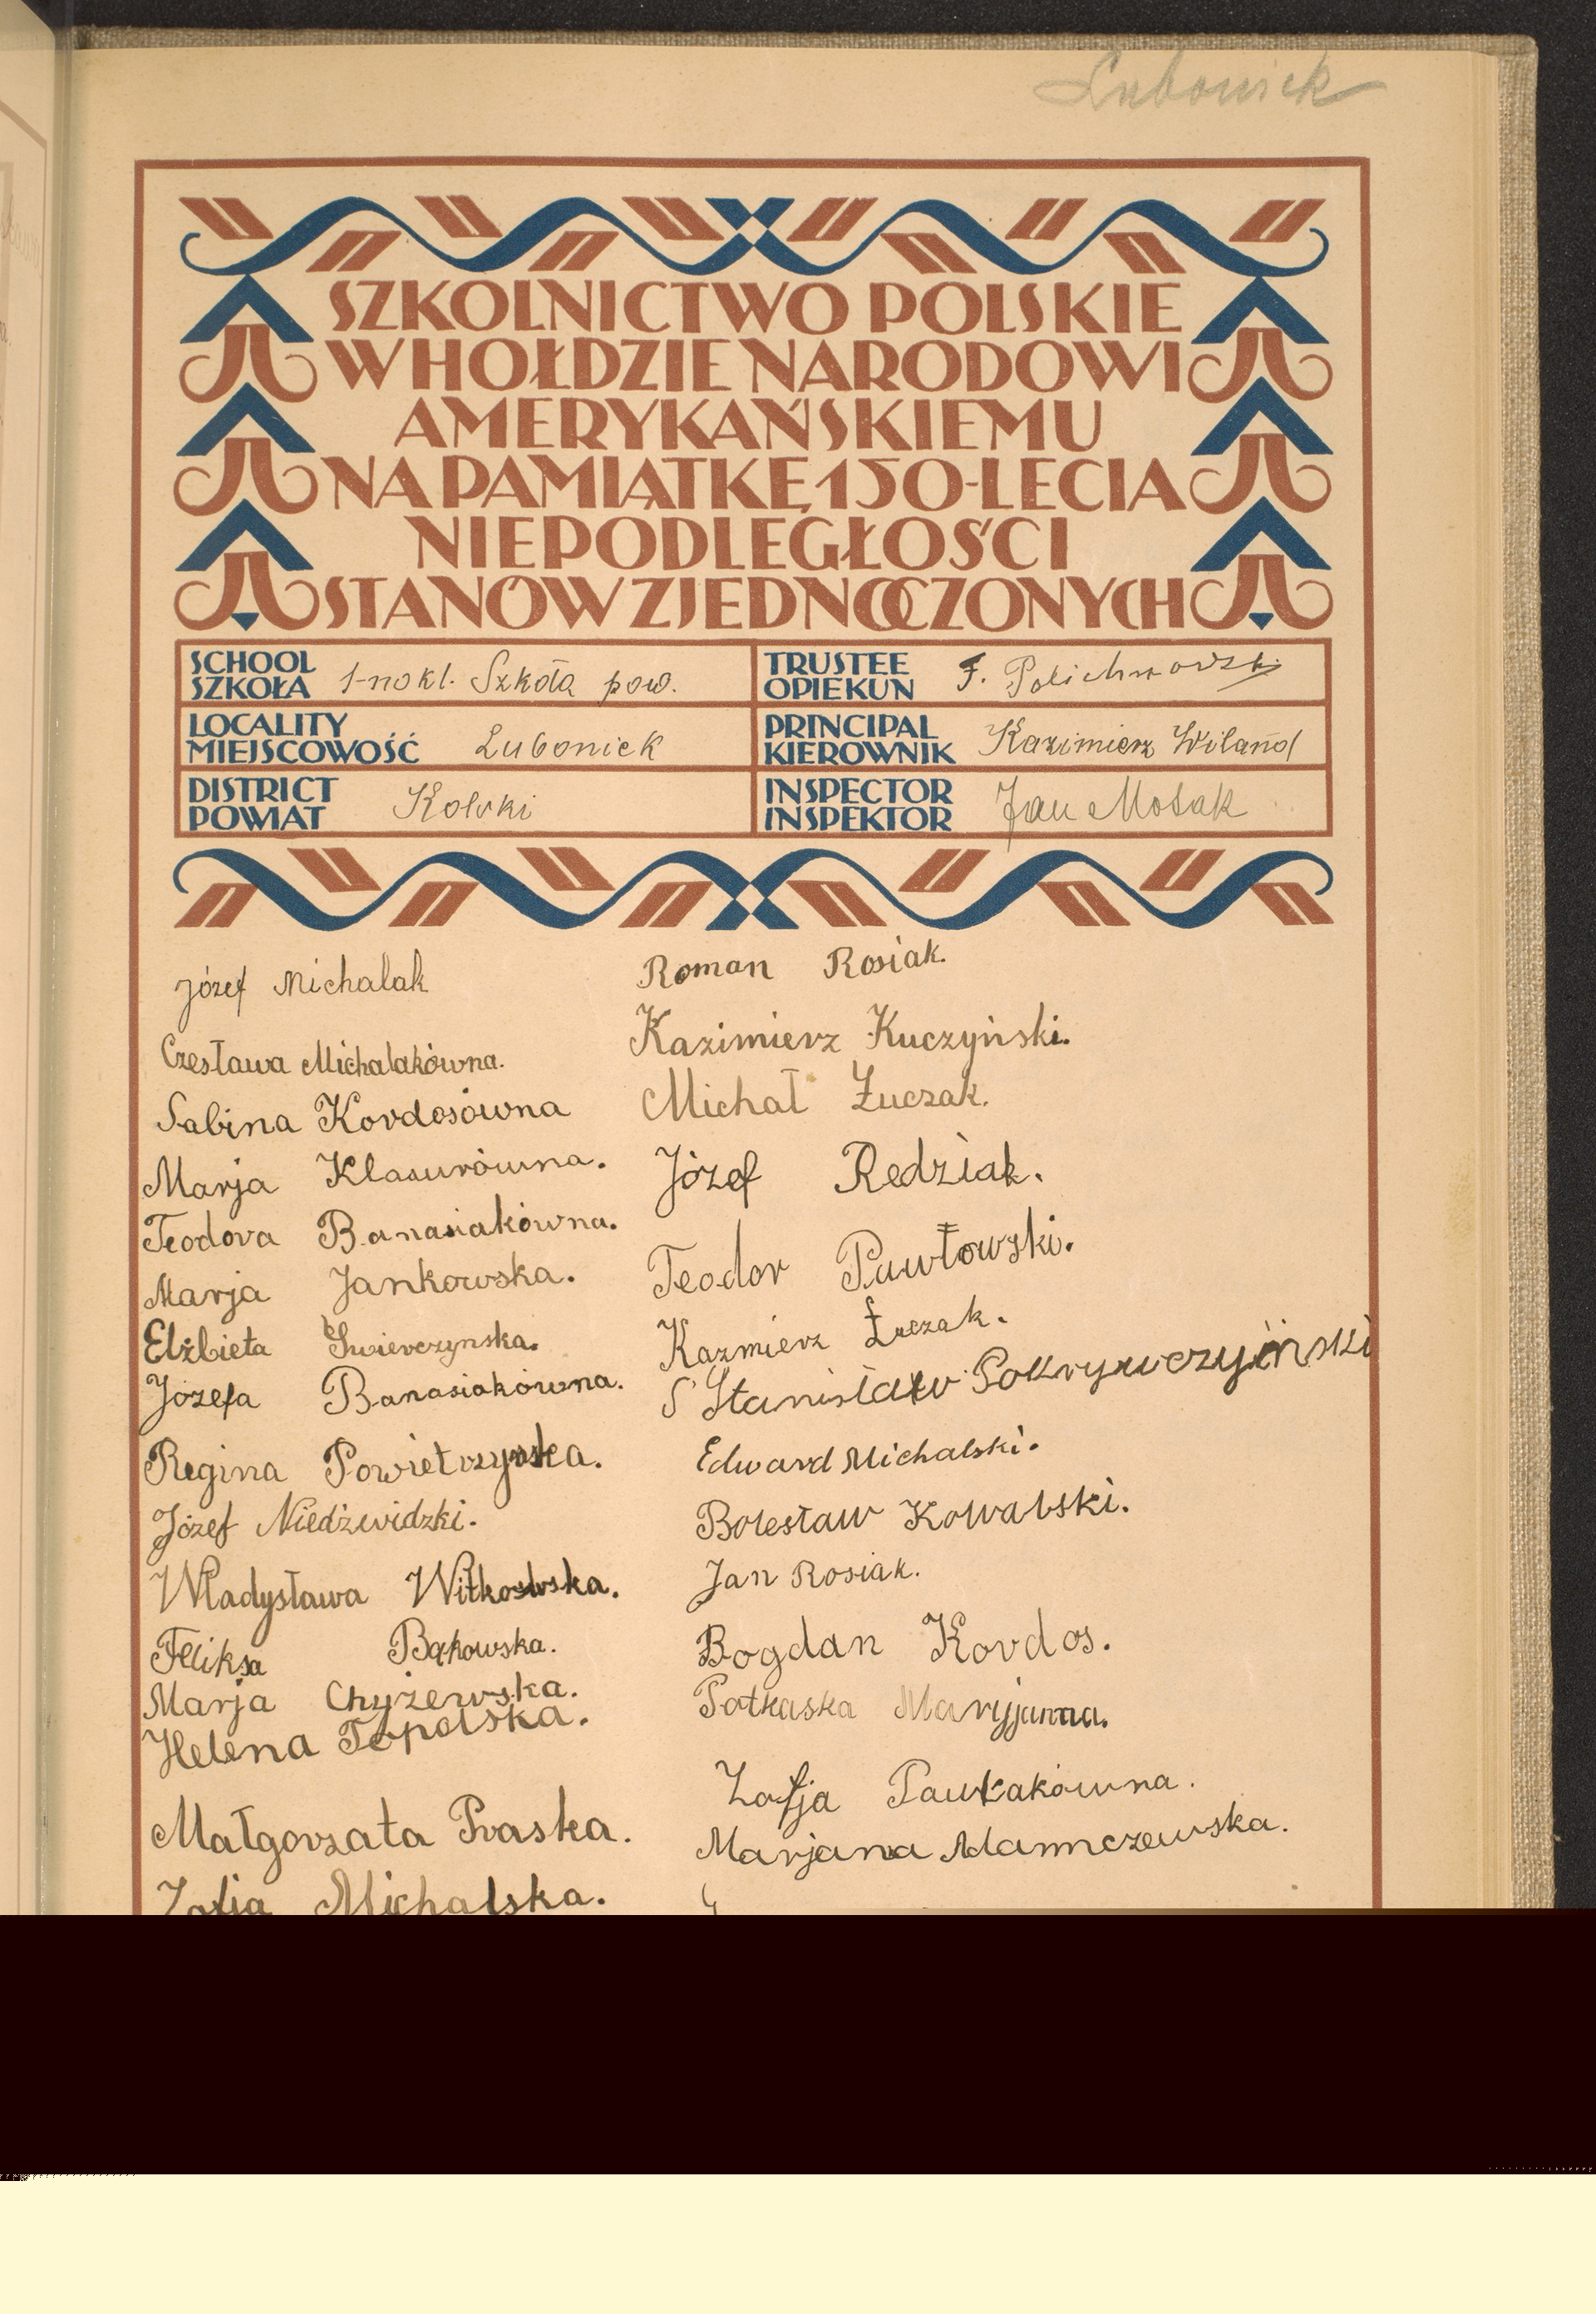 Luboniek
SZKOLNICTWO POLSKIE
W HOŁDZIE NARODOWI
AMERYKAŃSKIEMU
NA PAMIĄTKĘ 150-LECIA
NIEPODLEGŁOŚCI
STANÓW ZJEDNOCZONYCH
SCHOOL
SZKOŁA 1-no kl. Szkoła pow.
TRUSTEE
OPIEKUN F.
LOCALITY
MIEJSCOWOŚĆ Luboniek
PRINCIPAL
KIEROWNIK Kazimierz Wiland
DISTRICT
POWIAT Kolski
INSPECTOR
INSPEKTOR Jan Mosak
Józef Michalak
Czesława Michalakówna.
Sabina Kordosówna
Marja Klasurówna.
Teodora Banasiakówna.
Marja Jankowska.
Elżbieta Swierczynska.
Józefa Banasiakówna.
Regina Powietrzynska.
Józef Niedźwidzki.
Władysława Witkowska.
Feliksa Bąkowska.
Marja Chyżewska.
Helena Topolska.
Małgorzata Praska.
Zofja Michalska.
Roman Rosiak.
Kazimierz Kuczyński.
Michał Łuczak.
Józef Redziak.
Teodor Pawłowski.
Kazmierz Łuczak.
S Stanisław Pokrywczyński
Edward Michalski.
Bolesław Kowalski.
Jan Rosiak.
Bogdan Kordos.
Potkaska Maryjanna.
Zofja Pawlakówna.
Marjana Adamczewska.